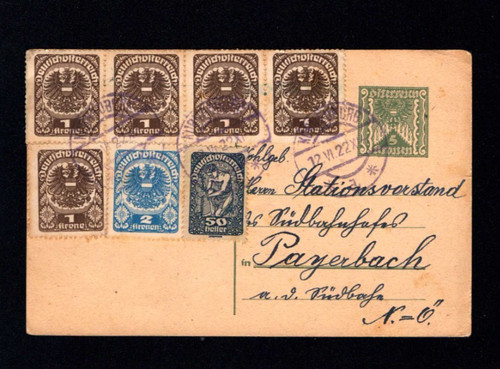 Deutschösterreich
1
Krone
Deutschösterreich
1
Krone
Deutschösterreich
1
Krone
Deutschösterreich
1
Krone
Österreich
Kronen
Deutschösterreich
1
Krone
Deutschösterreich
2
Kronen
Deutschösterreich
50
Heller
12.VI.22.X
Wohlgeb.
Herrn Stationsvorstand
des Südbahnhofes
in Payerbach
a. d. Südbahn
N.=Ö.